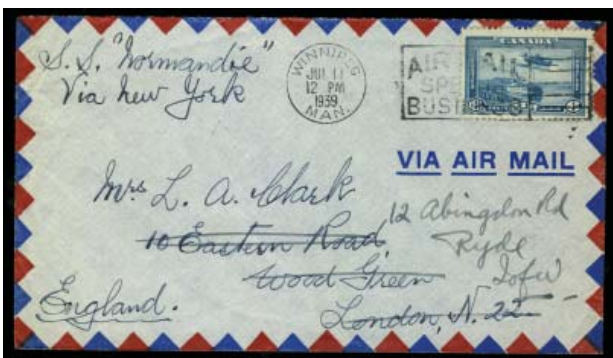 S.S. "Normandie"
Via New York
WINNIPEG
JUL 11
12 PM
1939
MAN.
AIR MAIL
BUSINESS
CANADA
VIA AIR MAIL
Mrs L. A. Clark
10 Eastern Road
Wood Green
London, N. 22
England.
12 Abingdon Rd
Ryde
IofW